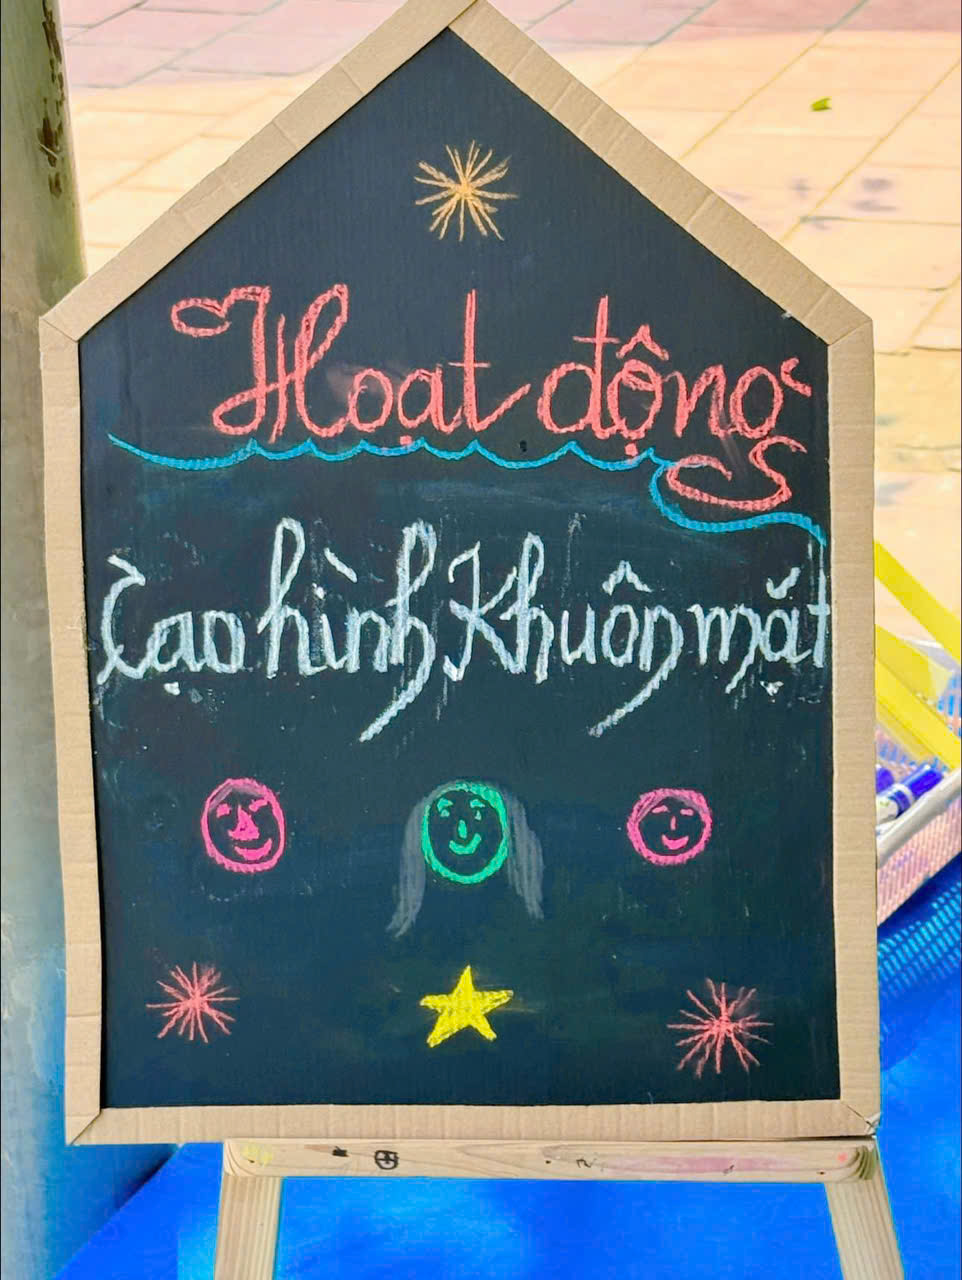 Hoạt động
Tạo hình Khuôn mặt